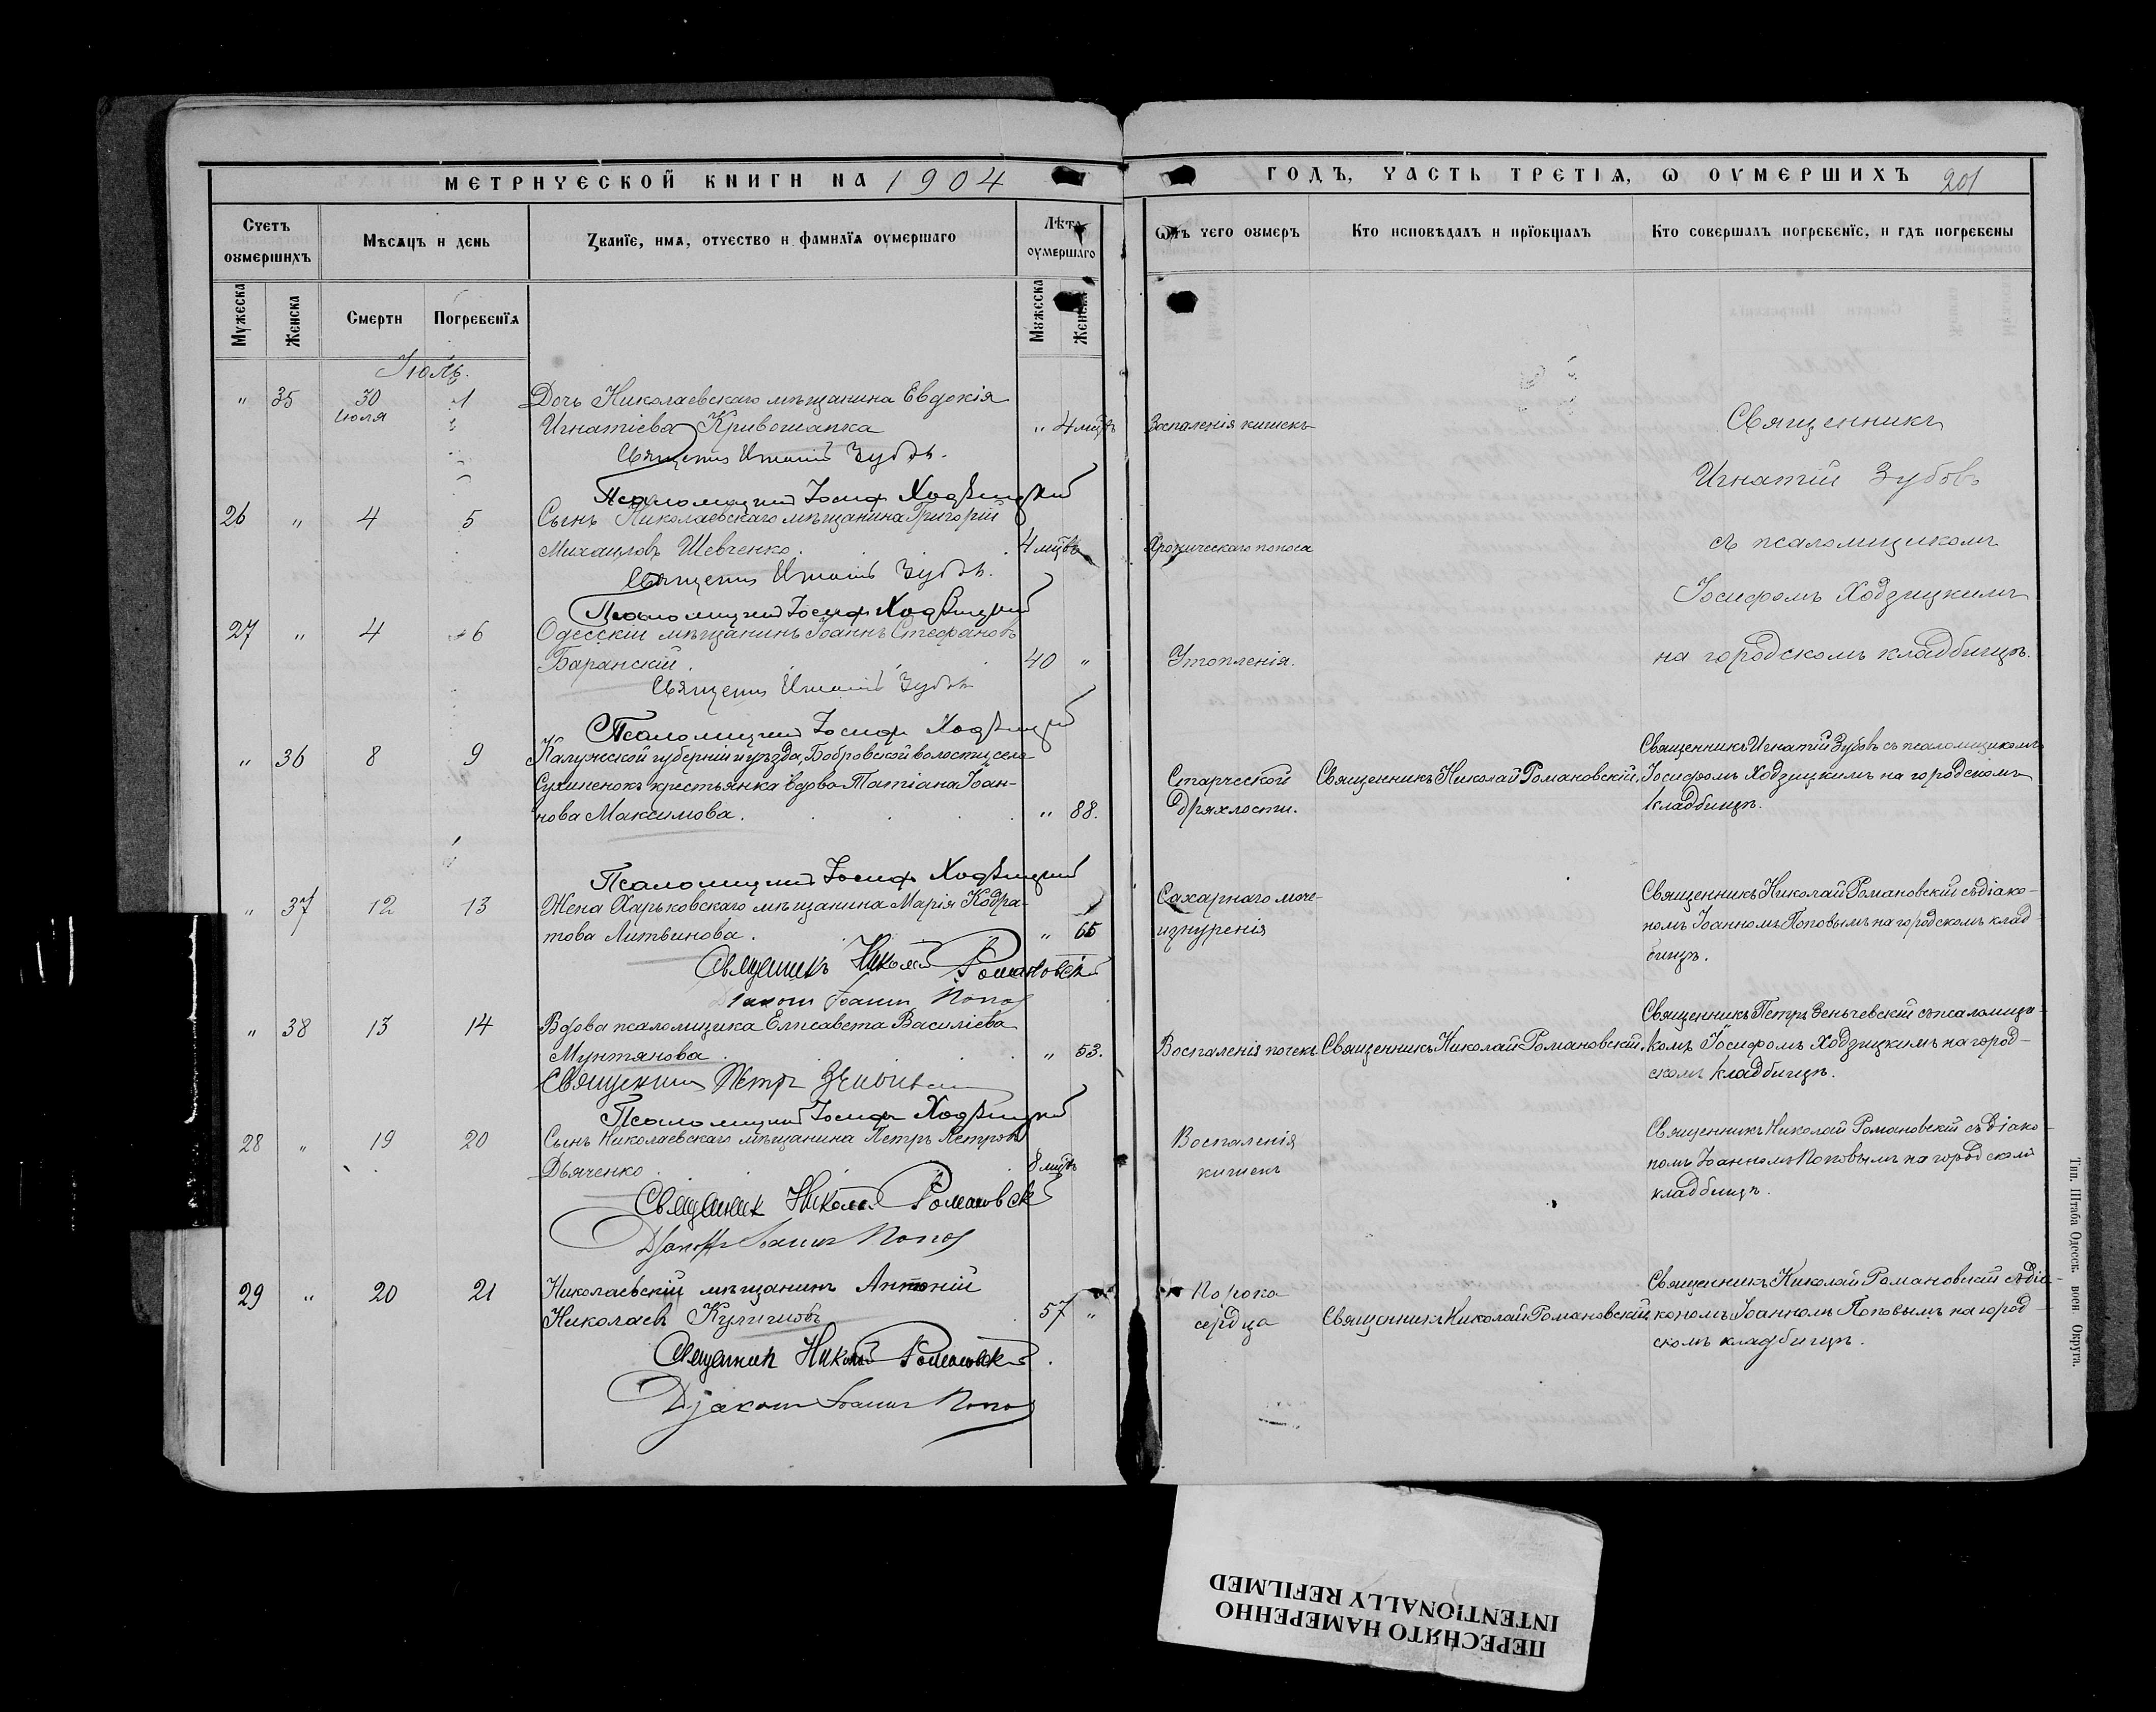 МЕТРИЧЕСКОЙ КНИГИ НА 1904
ГОДЪ, ЧАСТЬ ТРЕТІѦ, Ѡ ОУМЕРШИХЪ 201
Счетъ оумершихъ
Мѣсѧцъ и день
Званїе, имѧ, отчество и фамилїѧ оумершаго
Лѣта оумершаго
Ѿ чего оумеръ
Кто исповѣдалъ и прїобщалъ
Кто совершалъ погребенїе, и гдѣ погребены
Мужеска
Женска
Смерти
Погребенїѧ
Мужеска
Женска
Іюль.
„ 35 30 іюля 1 Дочь Николаевскаго мѣщанина Евдокія
Игнатіева Кривошапка „ 4 мцвъ Воспаленія кишекъ
Священ Игнатій Зубовъ.
Псаломщикъ Іосифъ Ходзицкій
Священникъ
Игнатій Зубовъ
съ псаломщикомъ
Іосифомъ Ходзицкимъ
на городскомъ кладбищѣ.
26 „ 4 5 Сынъ Николаевскаго мѣщанина Григорій
Михаиловъ Шевченко. 4 мцвъ Хроническаго поноса
Священ Игнатій Зубовъ.
Псаломщикъ Іосифъ Ходзицкій
27 „ 4 6 Одесскій мѣщанинъ Іоаннъ Стефановъ
Баранскій. 40 „ Утопленія.
Священ Игнатій Зубовъ
Псаломщикъ Іосифъ Ходзицкій
„ 36 8 9 Калужской губерніи и уѣзда, Бобровской волости, села
Сухиненокъ крестьянка вдова Татіана Іоан-
нова Максимова. „ 88.
Старческой
дряхлости.
Священникъ Николай Романовскій.
Священникъ Игнатій Зубовъ съ псаломщикомъ
Іосифомъ Ходзицкимъ на городскомъ
кладбищѣ.
Псаломщикъ Іосифъ Ходзицкій
„ 37 12 13 Жена Харьковскаго мѣщанина Марія Кодра-
това Литвинова. „ 65
Сахарнаго моче-
изнуренія
Священникъ Николай Романовскій съ діако-
номъ Іоанномъ Поповымъ на городскомъ клад
бищѣ.
Священникъ Николай Романовскій
Діаконъ Іоаннъ Попов
„ 38 13 14 Вдова псаломщика Елисавета Василіева
Мунтянова. „ 53.
Воспаленія почекъ. Священникъ Николай Романовскій.
Священникъ Петръ Зеньчевскій съ псаломщи-
комъ Іосифомъ Ходзицкимъ на город-
скомъ кладбищѣ.
Священникъ Петръ
Псаломщикъ Іосифъ Ходзицкій
28 „ 19 20 Сынъ Николаевскаго мѣщанина Петръ Петровъ
Дьяченко. 8 мцвъ
Воспаленія
кишекъ
Священникъ Николай Романовскій съ діако-
номъ Іоанномъ Поповымъ на городскомъ
кладбищѣ.
Священник Николай Романовск
Іоаннъ Попов
29 „ 20 21 Николаевскій мѣщанинъ Антоній
Николаевъ 57 „
Порока
сердца
Священникъ Николай Романовскій
Священникъ Николай Романовскій съ діа-
кономъ Іоанномъ Поповымъ на город-
скомъ кладбищѣ.
Священник Николай Романовск
Діаконъ Іоаннъ Попов
Тип. Штаба Одесск. воен. Округа.
ПЕРЕСНЯТО НАМЕРЕННО
INTENTIONALLY REFILMED